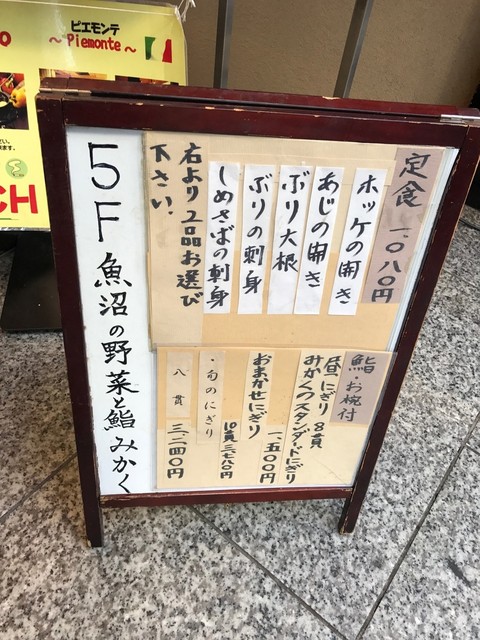 ピエモンテ
~Piemonte~
CH
定食 一、〇八〇円
ホッケの開き
あじの開き
ぶり大根
ぶりの刺身
しめさばの刺身
右より2品お選び
下さい。
鮨・お椀付
昼にぎり 8貫
みかくのスタンダードにぎり
一、五〇〇円
おまかせにぎり
10貫 三、七八〇円
・旬のにぎり
八貫 三二四〇円
5F 魚沼の野菜と鮨 みかく